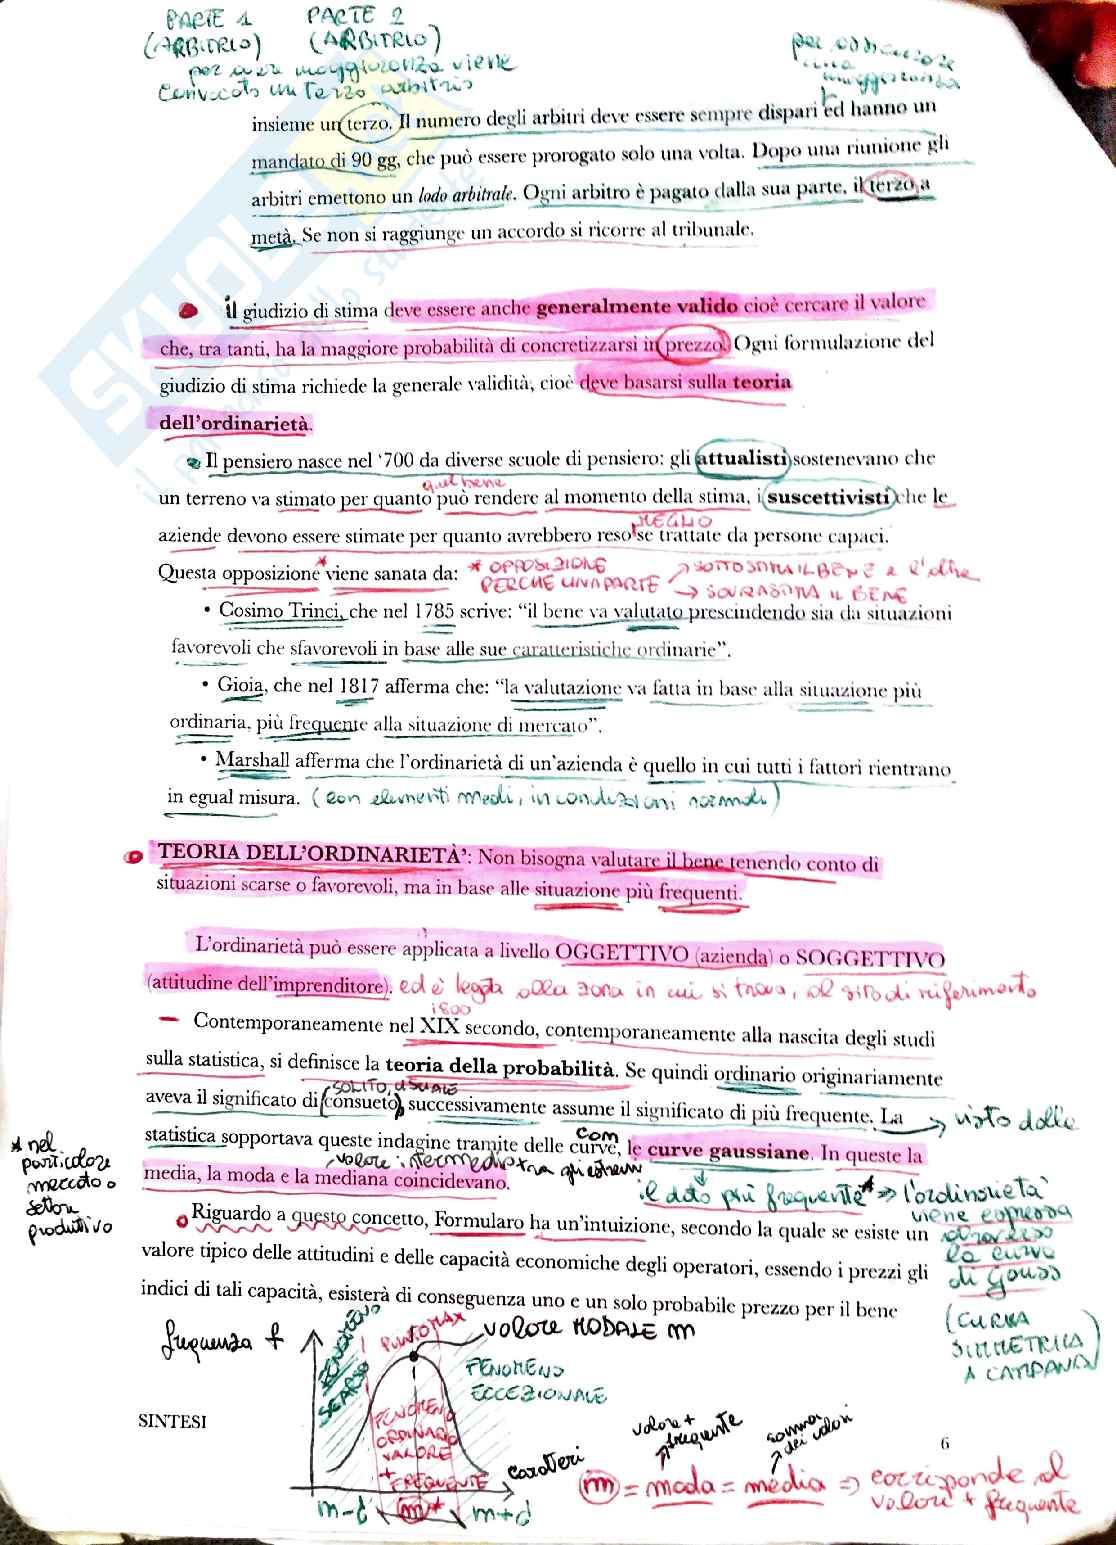 PARTE 1 PARTE 2
(ARBITRIO) (ARBITRIO)
per avere maggioranza viene
convocato un terzo arbitrio
per una maggioranza
insieme un terzo. Il numero degli arbitri deve essere sempre dispari ed hanno un
mandato di 90 gg, che può essere prorogato solo una volta. Dopo una riunione gli
arbitri emettono un lodo arbitrale. Ogni arbitro è pagato dalla sua parte, il terzo a
metà. Se non si raggiunge un accordo si ricorre al tribunale.
il giudizio di stima deve essere anche generalmente valido cioè cercare il valore
che, tra tanti, ha la maggiore probabilità di concretizzarsi in prezzo. Ogni formulazione del
giudizio di stima richiede la generale validità, cioè deve basarsi sulla teoria
dell'ordinarietà.
Il pensiero nasce nel '700 da diverse scuole di pensiero: gli attualisti sostenevano che
quel bene
un terreno va stimato per quanto può rendere al momento della stima, i suscettivisti che le
MEGLIO
aziende devono essere stimate per quanto avrebbero reso se trattate da persone capaci.
Questa opposizione* viene sanata da: * OPPOSIZIONE → SOTTOSTIMA IL BENE e l'altra
PERCHE UNA PARTE → SOVRASTIMA IL BENE
• Cosimo Trinci, che nel 1785 scrive: "il bene va valutato prescindendo sia da situazioni
favorevoli che sfavorevoli in base alle sue caratteristiche ordinarie".
• Gioia, che nel 1817 afferma che: "la valutazione va fatta in base alla situazione più
ordinaria, più frequente alla situazione di mercato".
• Marshall afferma che l'ordinarietà di un'azienda è quello in cui tutti i fattori rientrano
in egual misura. (con elementi medi, in condizioni normali)
TEORIA DELL'ORDINARIETÀ': Non bisogna valutare il bene tenendo conto di
situazioni scarse o favorevoli, ma in base alle situazione più frequenti.
L'ordinarietà può essere applicata a livello OGGETTIVO (azienda) o SOGGETTIVO
(attitudine dell'imprenditore). ed è legata alla zona in cui si trova, al sito di riferimento
1800
Contemporaneamente nel XIX secondo, contemporaneamente alla nascita degli studi
sulla statistica, si definisce la teoria della probabilità. Se quindi ordinario originariamente
SOLITO, USUALE
aveva il significato di (consueto), successivamente assume il significato di più frequente. La → visto dalla
statistica sopportava queste indagine tramite delle curve, le curve gaussiane. In queste la
com
valore intermedio tra gli estremi
media, la moda e la mediana coincidevano.
il dato più frequente* ⇒ l'ordinarietà
viene espressa
attraverso
la curva
di Gauss
(CURVA
SIMMETRICA
A CAMPANA)
* nel
particolare
mercato o
settore
produttivo
Riguardo a questo concetto, Formularo ha un'intuizione, secondo la quale se esiste un
valore tipico delle attitudini e delle capacità economiche degli operatori, essendo i prezzi gli
indici di tali capacità, esisterà di conseguenza uno e un solo probabile prezzo per il bene
frequenza f
FENOMENO
SCARSO
PUNTO MAX
VALORE MODALE m
FENOMENO
ECCEZIONALE
FENOMENO
ORDINARIO
VALORE
+ FREQUENTE
caratteri
m-d m* m+d
SINTESI
6
valore +
frequente
somma
dei valori
m = moda = media ⇒ corrisponde al
valore + frequente
SKUOLA